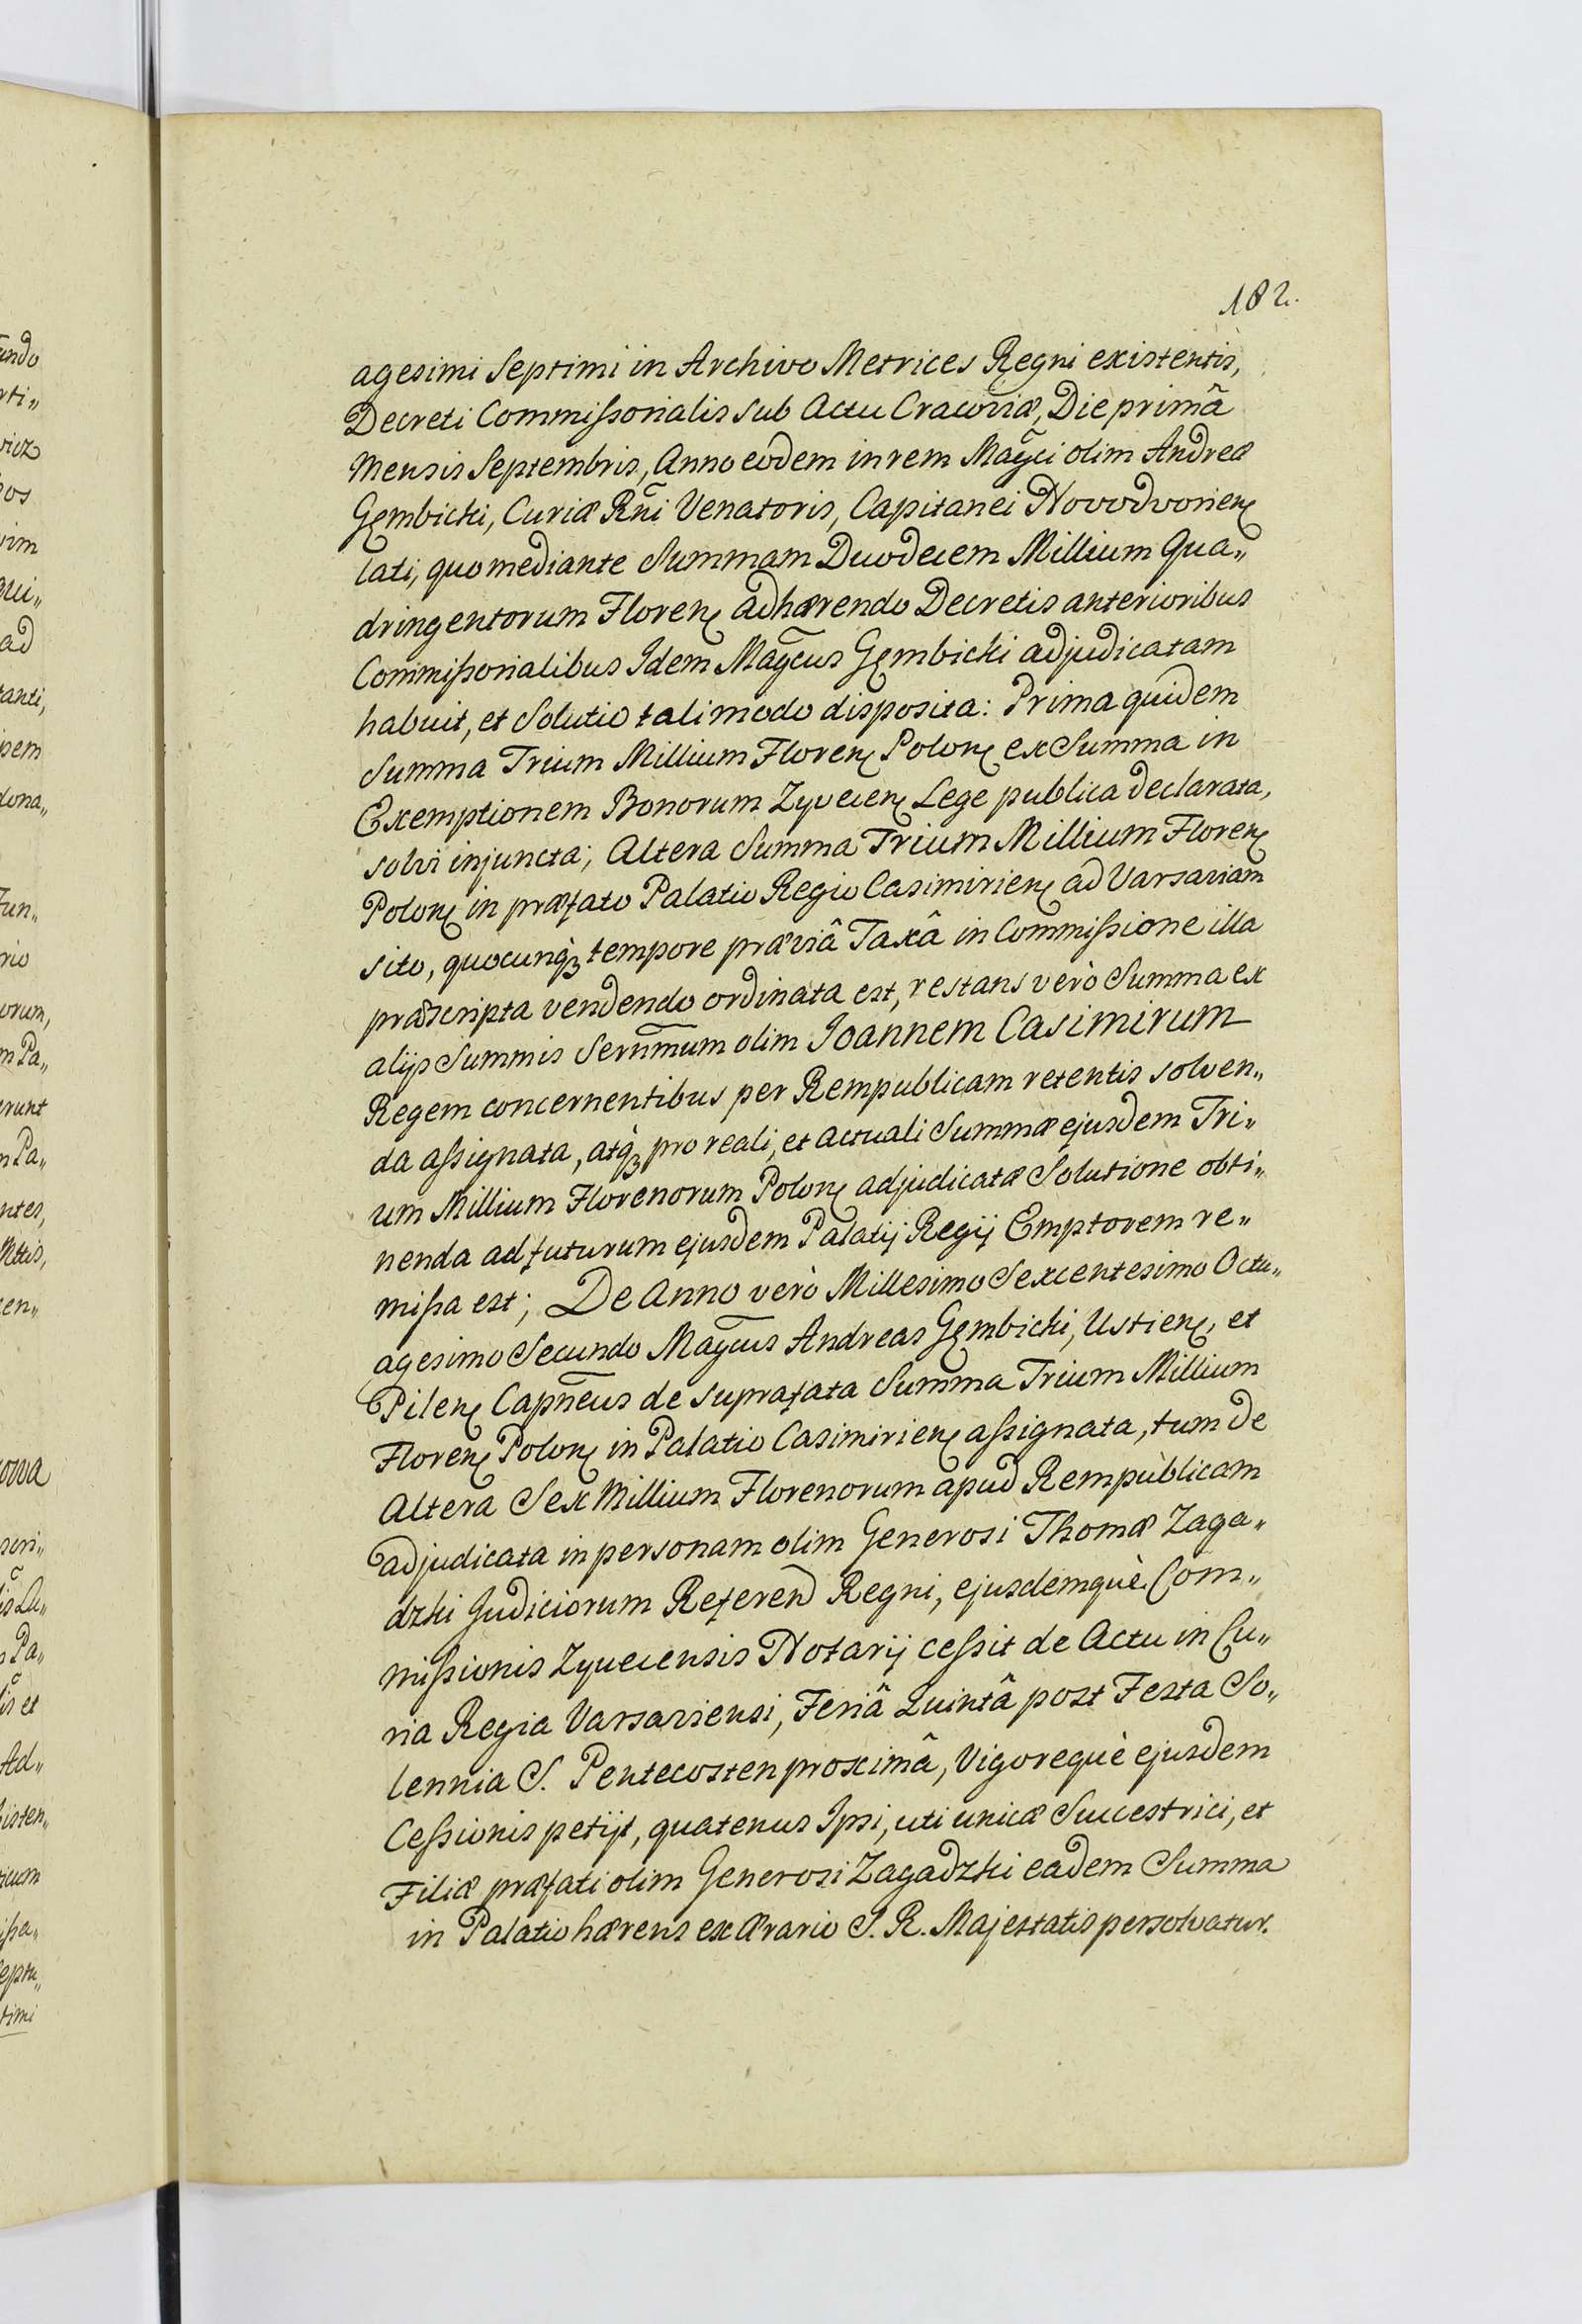 182.
agesimi Septimi in Archivo Metrices Regni existentis,
Decreti Commißorialis sub Actu Cracoviæ, Die primâ
Mensis Septembris, Anno eodem in rem Magci olim Andreæ
Gembicki, Curiæ Rni Venatoris, Capitanei Novodvorien
lati, quo mediante Summam Duodecem Millium Qua„
dringentorum Floren adhærendo Decretis anterioribus
Commißorialibus Idem Magcus Gembicki adjudicatam
habuit, et Solutio tali modo disposita: Prima quidem
Summa Trium Millium Floren Polon ex Summa in
Exemptionem Bonorum Zyvecen Lege publica declarata,
solvi injuncta; Altera Summa Trium Millium Floren
Polon in præfato Palatio Regio Casimirien ad Varsaviam
sito, quocunq3 tempore præviâ Taxâ in Commißione illa
præscripta vendendo ordinata est, restans verò Summa ex
alijs Summis Sernmum olim Joannem Casimirum
Regem concernentibus per Rempublicam retentis solven„
da aßignata, atq3 pro reali, et actuali Summæ ejusdem Tri„
um Millium Florenorum Polon adjudicatæ Solutione obti„
nenda ad futurum ejusdem Palatij Regij Emptorem re„
mißa est; De Anno verò Millesimo Sexcentesimo Octu„
agesimo Secundo Magcus Andreas Gembicki, Ustien, et
Pilen Capneus de suprafata Summa Trium Millium
Floren Polon in Palatio Casimirien aßignata, tum de
Altera Sex Millium Florenorum apud Rempublicam
adjudicata in personam olim Generosi Thomæ Zaga„
dzki Judiciorum Referend Regni, ejusdemquè Com„
mißionis Zyvecensis Notarij ceßit de Actu in Cu„
ria Regia Varsaviensi, Feriâ Quintâ post Festa So„
lennia S. Pentecosten proximâ, Vigorequè ejusdem
Ceßionis petijt, quatenus Ipsi, uti unicæ Succestrici, et
Filiæ præfati olim Generosi Zagadzki eadem Summa
in Palatio hærens ex Ærario S. R. Majestatis persolvatur.